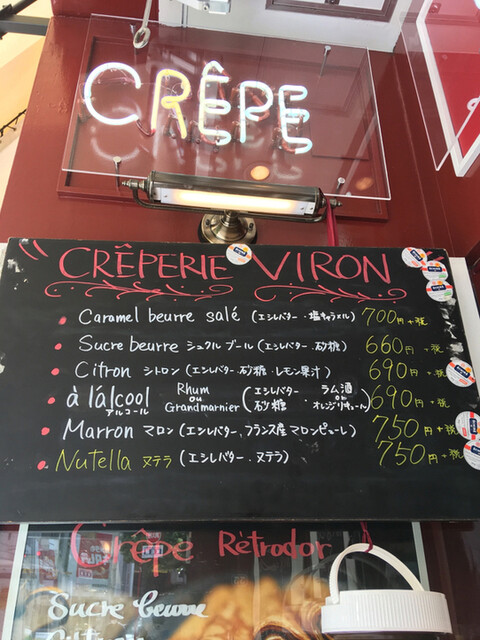 CRÊPE
CRÊPERIE VIRON
Caramel beurre salé (エシレバター・塩キャラメル) 700円+税
Sucre beurre シュクル ブール (エシレバター・砂糖) 660円+税
Citron シトロン (エシレバター・砂糖・レモン果汁) 690円+税
à l'álcool アルコール Rhum ou Grandmarnier (エシレバター 砂糖・ラム酒 or オレンジリキュール) 690円+税
Marron マロン (エシレバター、フランス産マロンピューレ) 750円+税
Nutella ヌテラ (エシレバター・ヌテラ) 750円+税
Crêpe Rètrodor
Sucre beurre